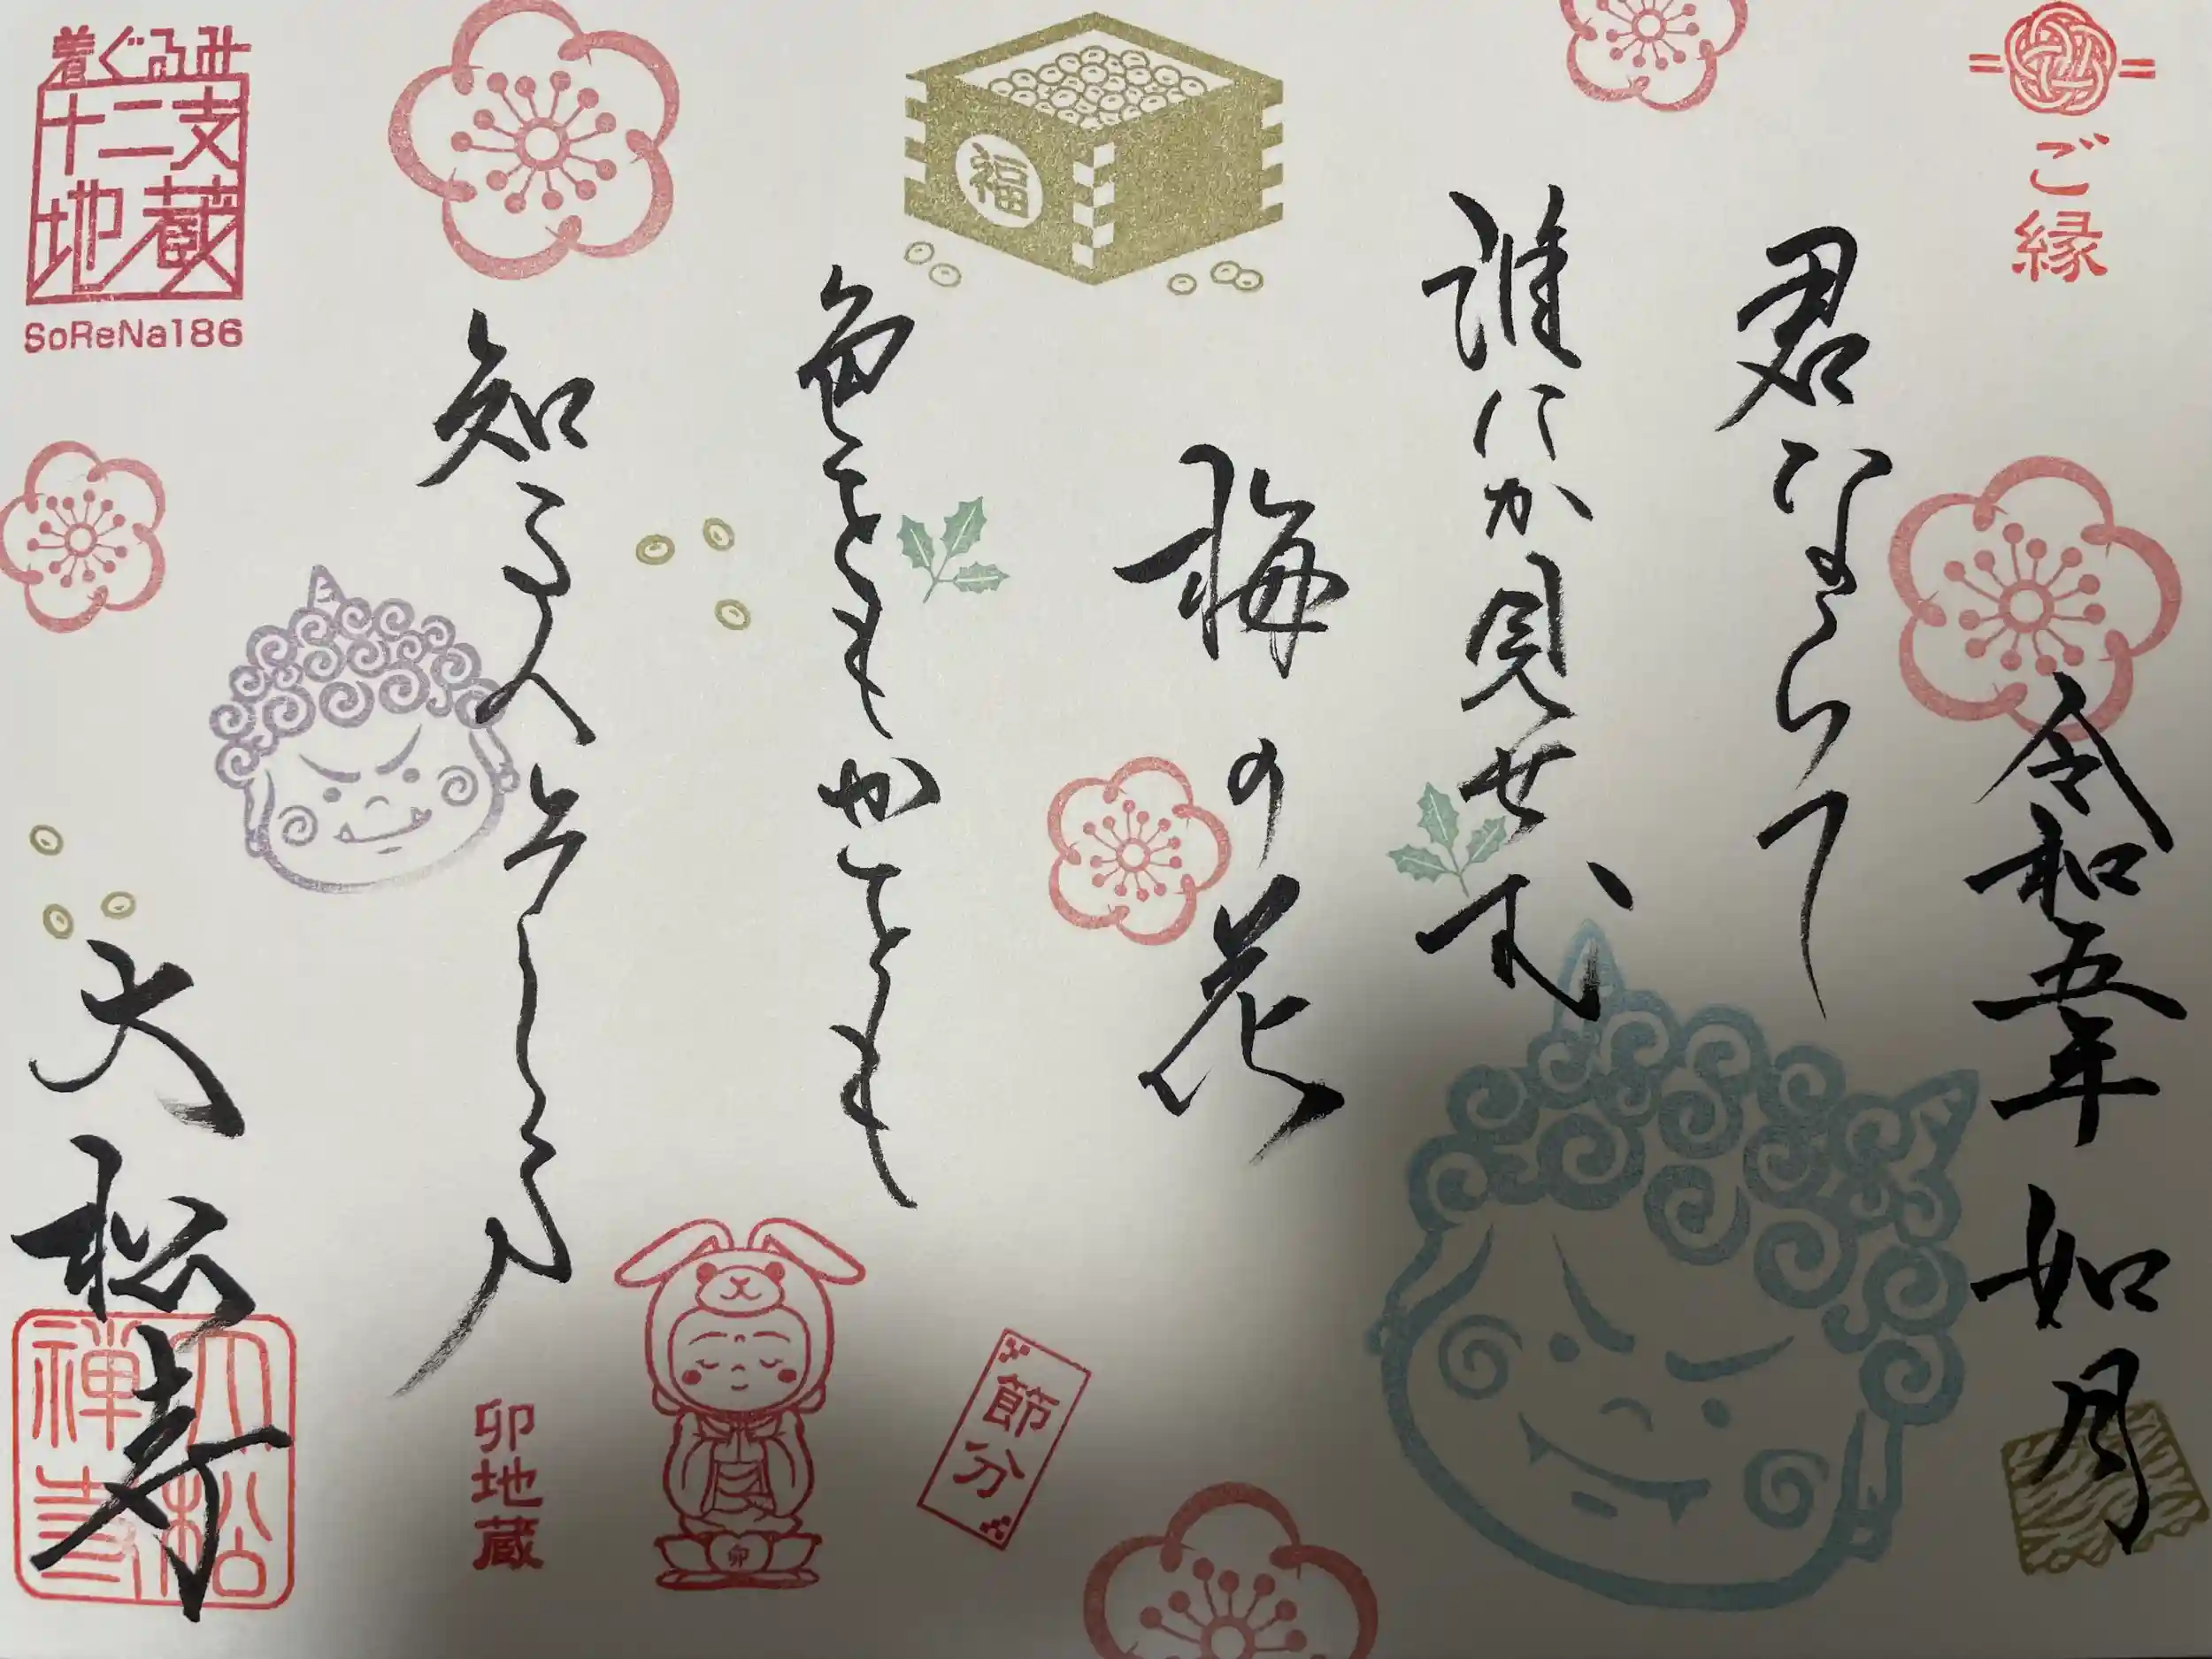 ご縁
令和五年 如月
君ならで
誰にか見せむ
梅の花
色をもかをも
知る人ぞしる
大松寺
福
節分
卯地蔵
卯
大松禅寺
着ぐるみ
十二支
地蔵
SoReNa186